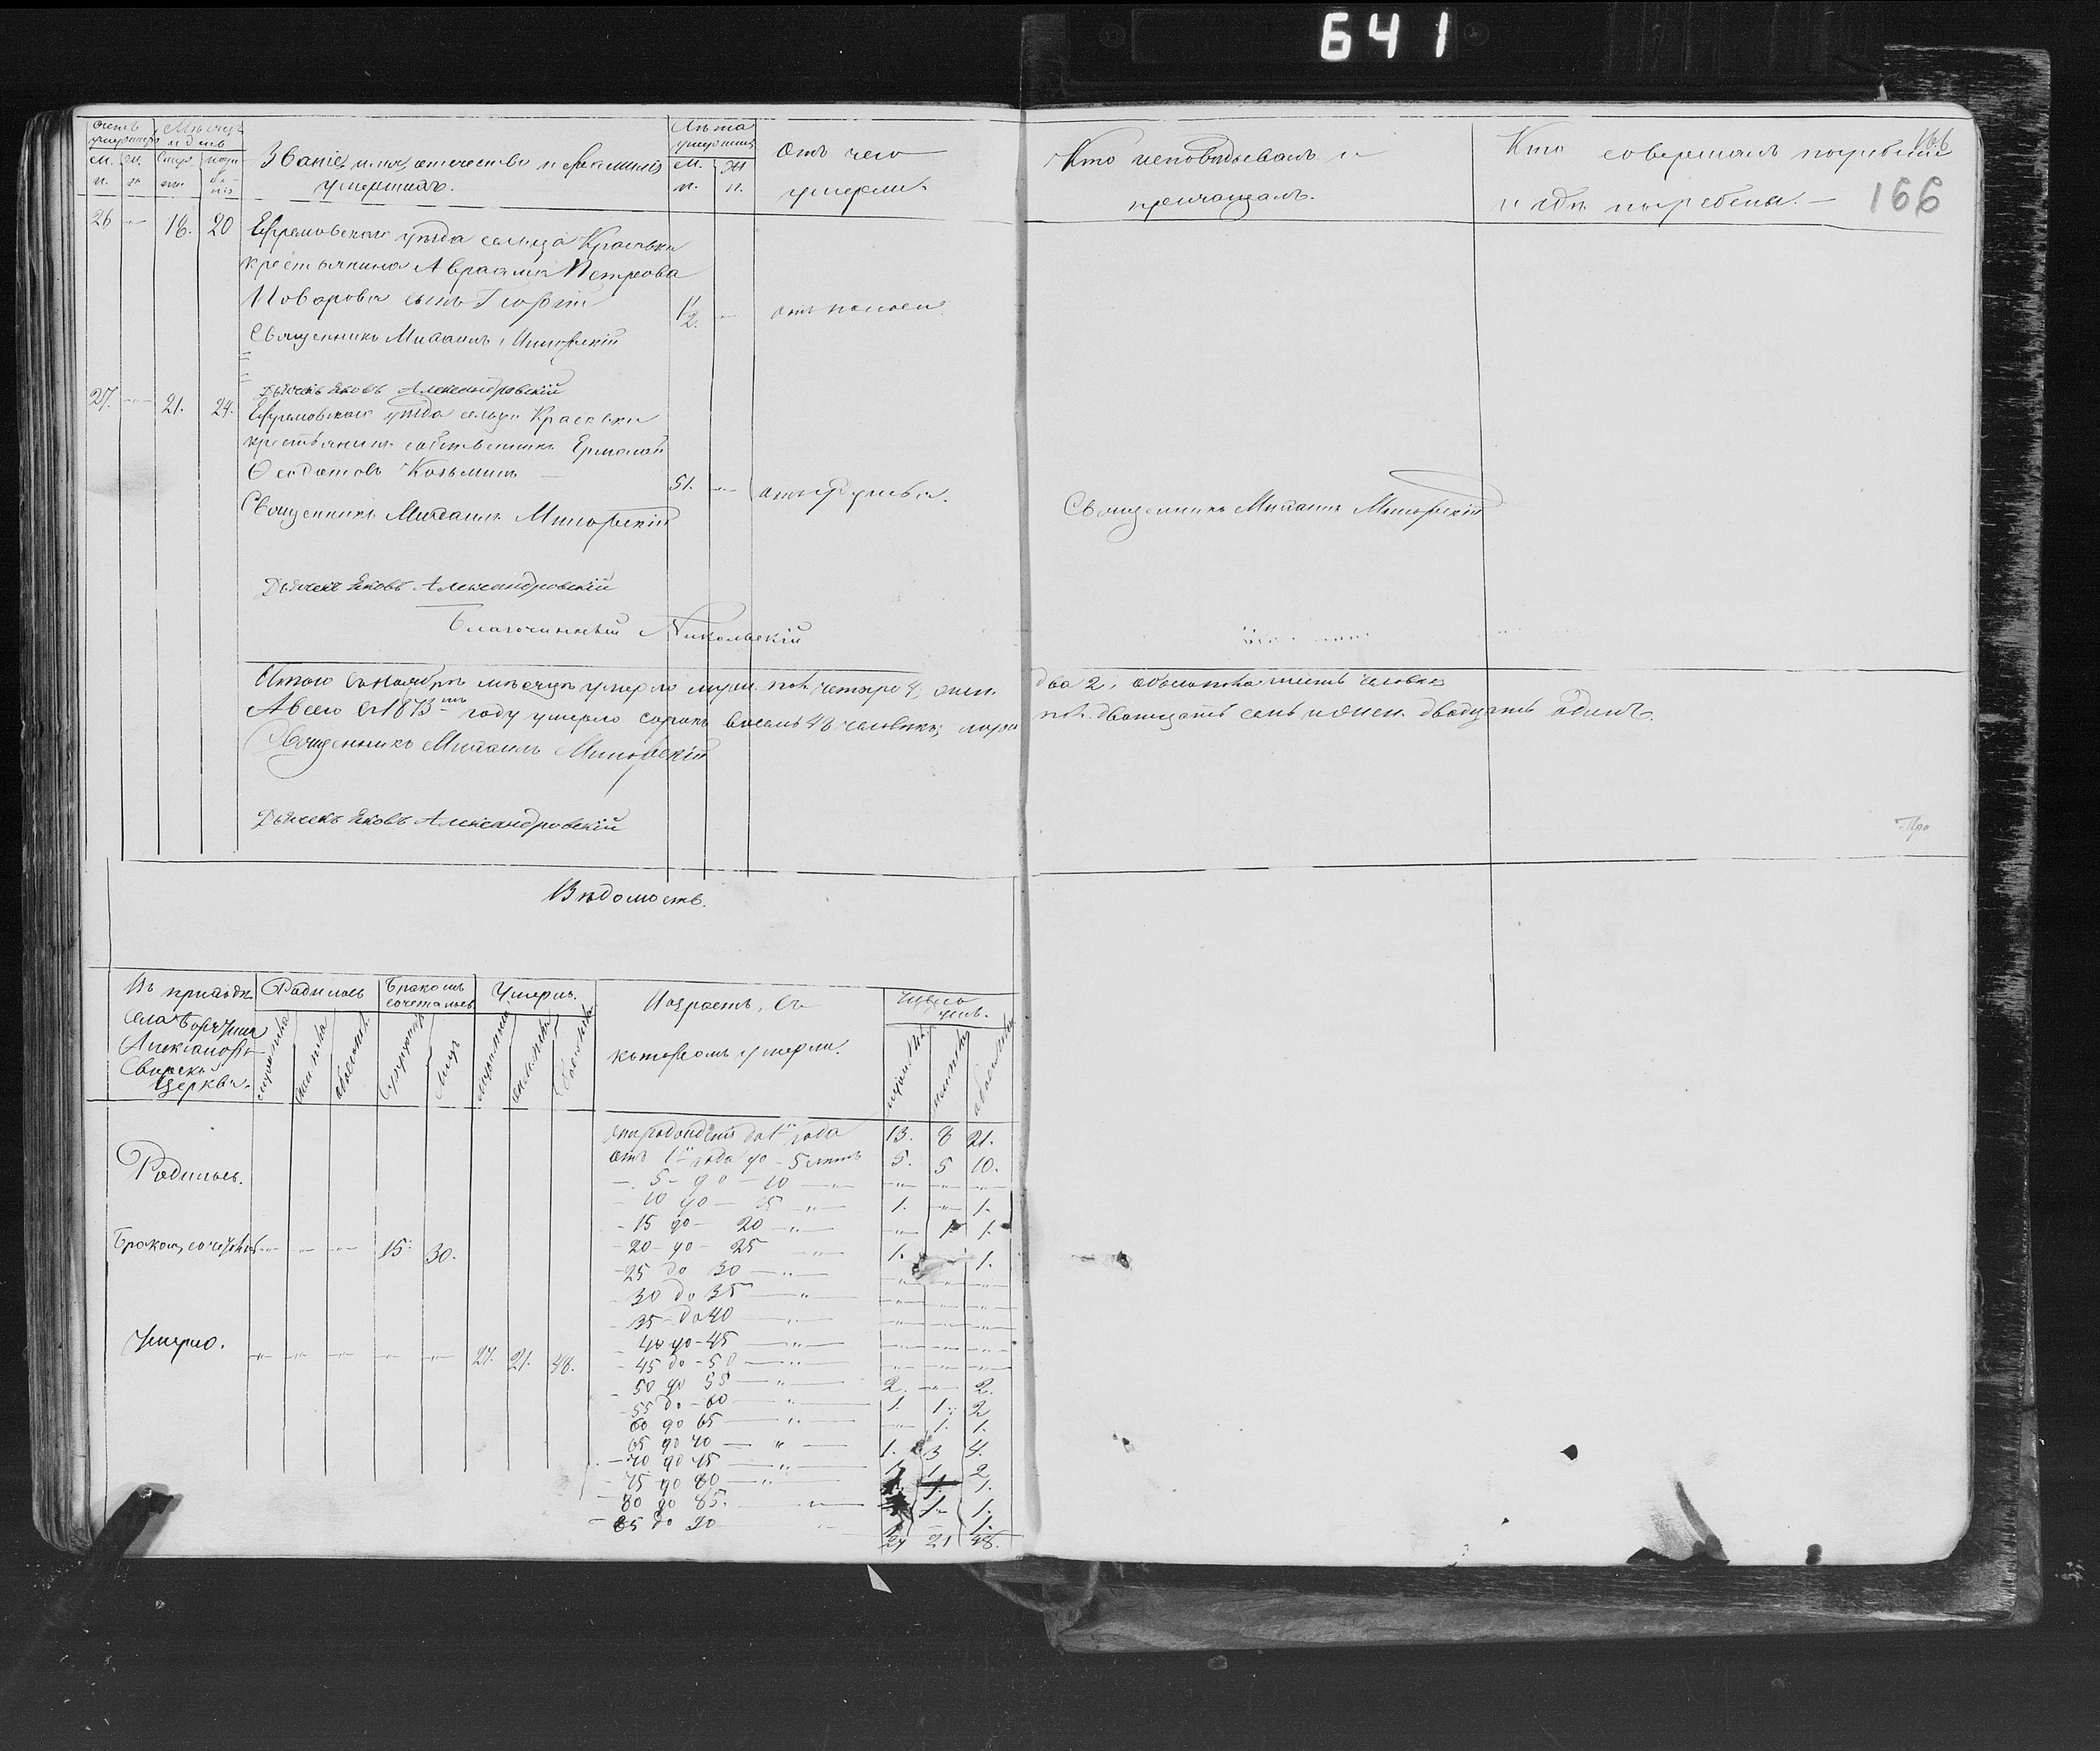 641
166
166
Счетъ умершихъ
Мѣсяцъ и день
Званіе, имя, отчество и фамилія умершихъ.
Лѣта умершихъ
Отъ чего умерли.
Кто исповѣдывалъ и причащалъ.
Кто совершалъ погребеніе и гдѣ погребены.
М. п.
Ж. п.
М. п.
Ж. п.
26 — 18. 20 Ефремовскаго уѣзда сельца Красовки
крестьянина Авраамія Петрова
Поварова сынъ Георгій 1/2. — отъ поноса.
Священникъ Михаилъ
Дьячекъ Яковъ Александровскій
27. — 21. 24. Ефремовскаго уѣзда сельца Красовки
крестьянинъ собственникъ Ермолай
Ѳеодотовъ Козьминъ — 51. —
Священникъ Михаилъ
Священникъ Михаилъ
Дьячекъ Яковъ Александровскій
Благочинный Никольскій
Итого въ Ноябрѣ мѣсяцѣ умерло муж. пол. четыре 4, жен. два 2, обоего пола шесть человѣкъ
А всего въ 1873 году умерло сорокъ восемь 48 человѣкъ, муж. пол. двадцать семь и жен. двадцать одинъ.
Священникъ Михаилъ
Дьячекъ Яковъ Александровскій
Про
Вѣдомость.
Въ приходѣ
села
Александро-
Свирской
Церкви.
Родилось
Бракомъ сочеталось
Умерло.
Возрастъ, въ
которомъ умерли.
Число умер.
отъ рожденія до 1 года 13. 8 21.
Родилось.
отъ 1 года до 5 лѣтъ 5. 5 10.
— 5 — до — 10 — „ —
— 10 до — 15 — „ — 1. — 1.
— 15 до — 20 — „ — — 1 1.
Бракомъ сочеталось — — — 15. 30.
— 20 — до — 25 — „ — 1. 1.
— 25 до 30 — „ —
— 30 до 35 — „ —
— 35 — до 40
— 40 до — 45 — „ —
Умерло. — — — — — 27. 21. 48.
— 45 до — 50 — „ —
— 50 до 55 — „ — 2. — 2.
— 55 до — 60 — „ — 1. 1. 2
60 до 65 — „ — — 1. 1.
65 до 70 — „ — 1. 3 4.
— 70 до 75 — „ — 1. 1. 2
— 75 до 80 — „ — 1.
— 80 до 85. — „ — 1. 1.
— 85 до 90 1.
27 21 48.